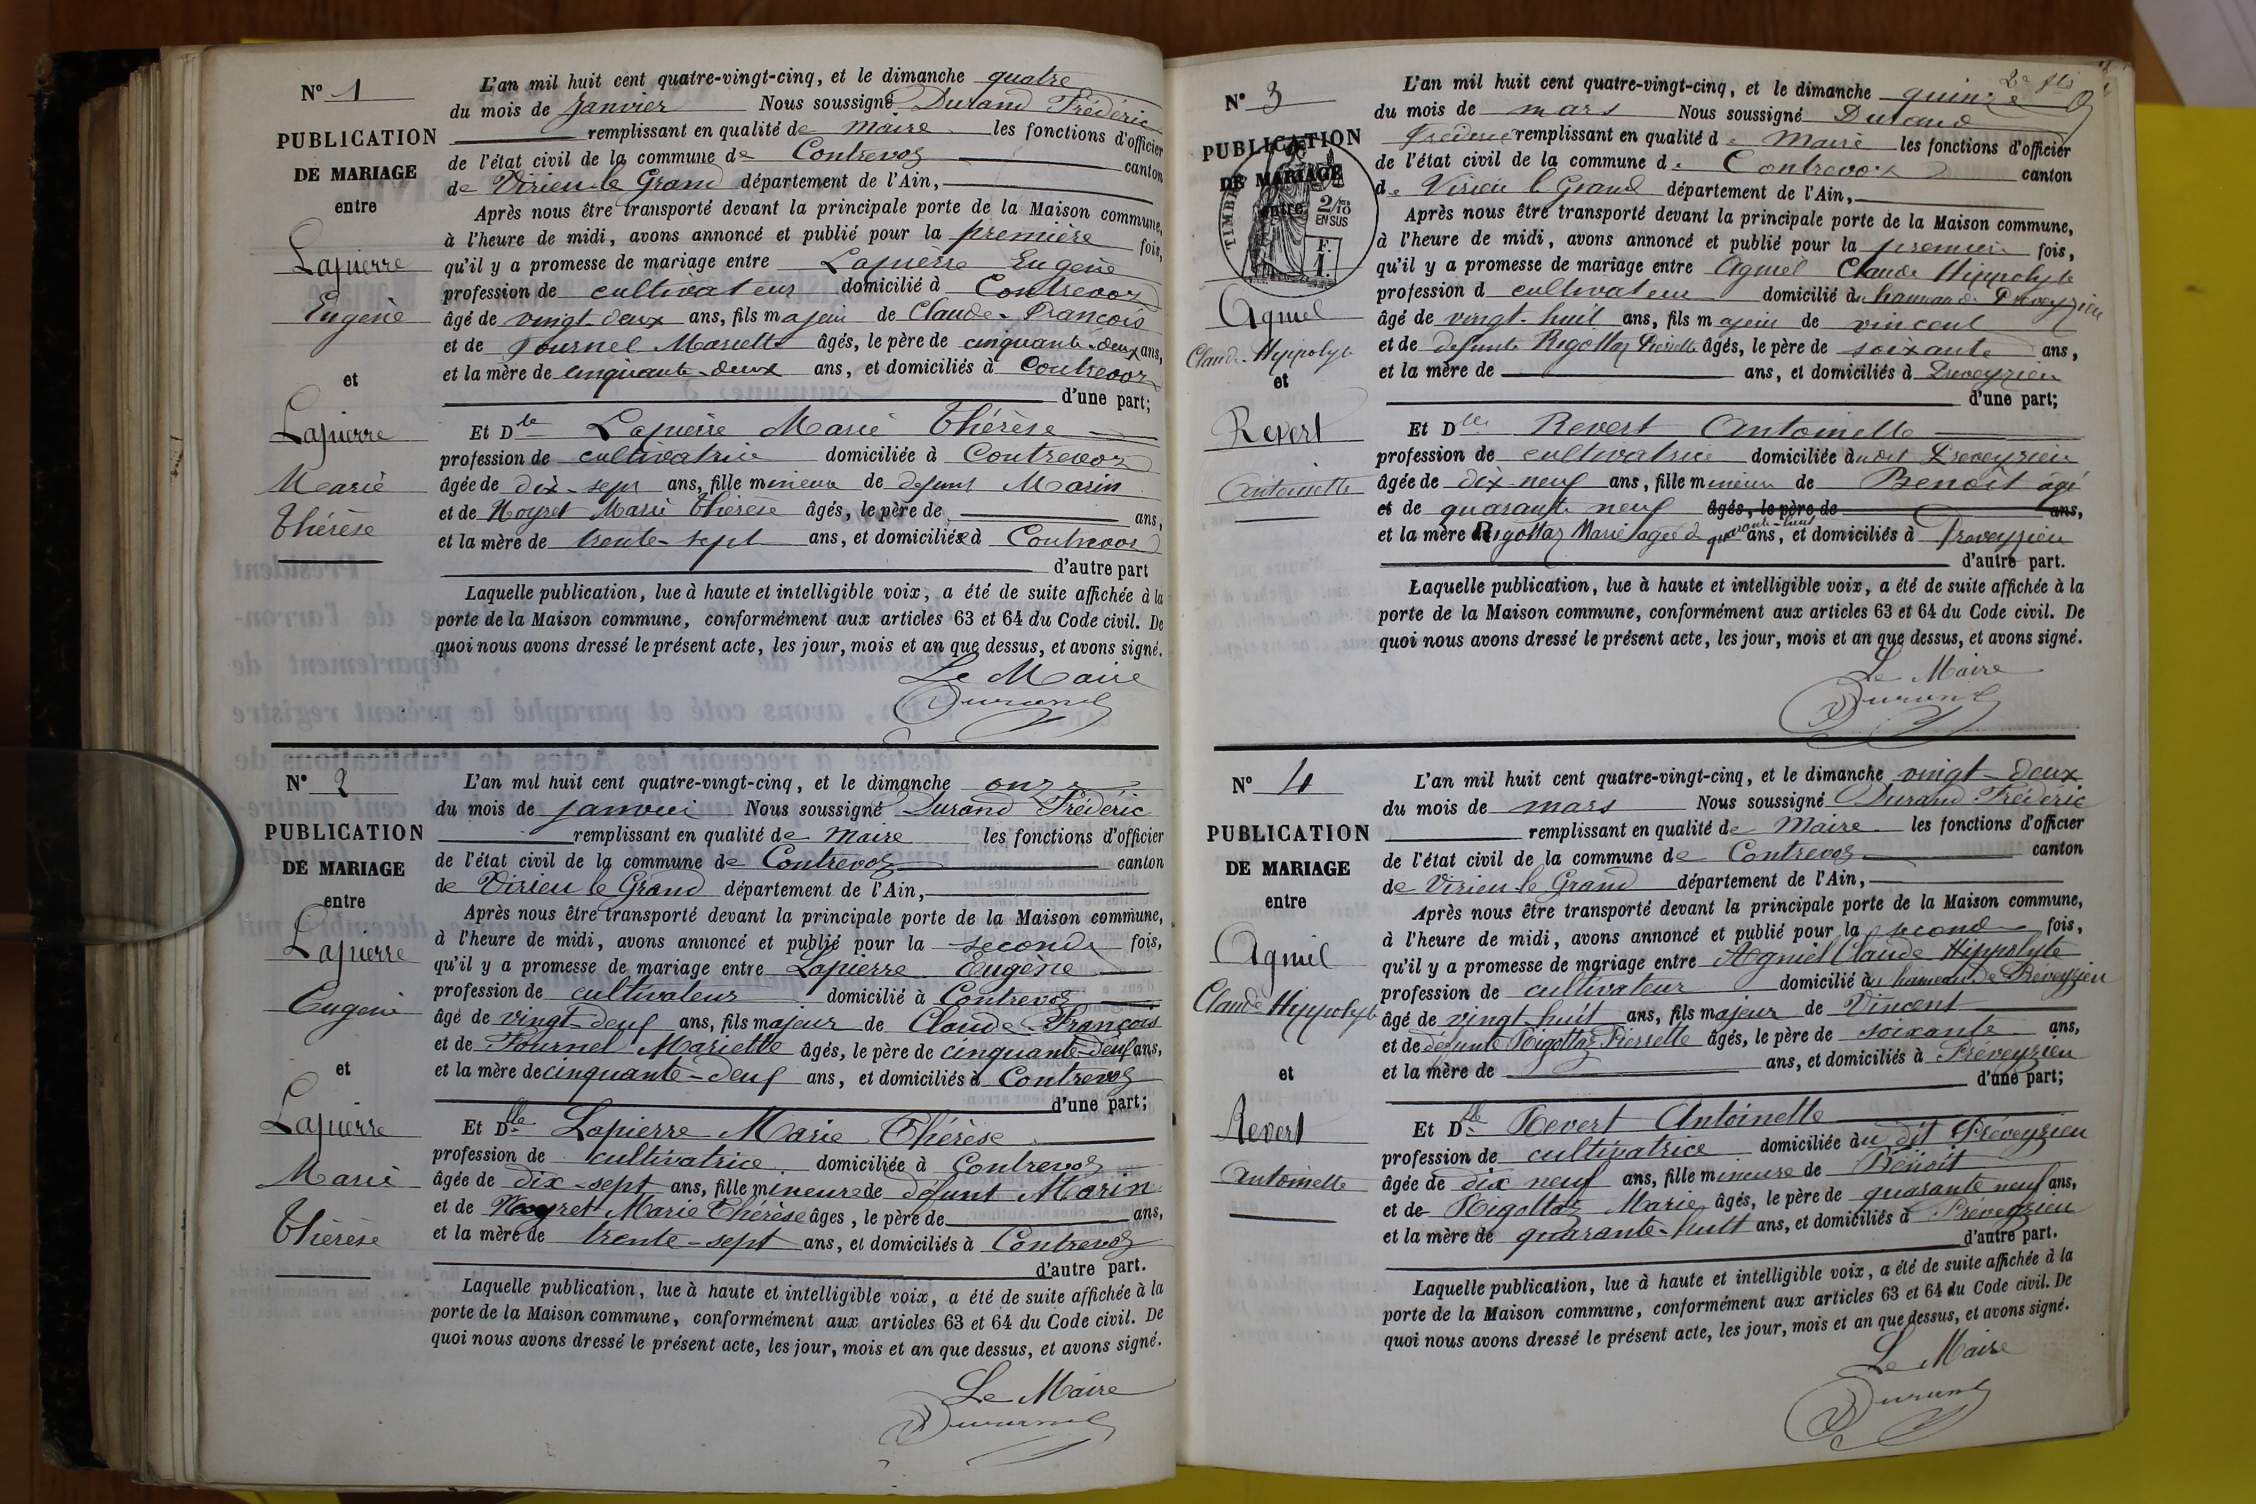 N° 1
PUBLICATION
DE MARIAGE
entre
Lapierre
Eugène
et
Lapierre
Marie
Thérèse
L'an mil huit cent quatre-vingt-cinq, et le dimanche quatre
du mois de janvier Nous soussigné Durand Frédéric
remplissant en qualité de maire les fonctions d'officier
de l'état civil de la commune de Contrevoz canton
de Virieu-le Grand département de l'Ain,
Après nous être transporté devant la principale porte de la Maison commune,
à l'heure de midi, avons annoncé et publié pour la première fois,
qu'il y a promesse de mariage entre Lapierre Eugène
profession de cultivateur domicilié à Contrevoz
âgé de vingt-deux ans, fils majeur de Claude-François
et de Fournel Mariette âgés, le père de cinquante-deux ans,
et la mère de cinquante-deux ans, et domiciliés à Contrevoz
d'une part;
Et Dlle Lapierre Marie Thérèse
profession de cultivatrice domiciliée à Contrevoz
âgée de dix-sept ans, fille mineure de défunt Marin
et de Noyret Marie Thérèse âgés, le père de ans,
et la mère de trente-sept ans, et domiciliés à Contrevoz
d'autre part
Laquelle publication, lue à haute et intelligible voix, a été de suite affichée à la
porte de la Maison commune, conformément aux articles 63 et 64 du Code civil. De
quoi nous avons dressé le présent acte, les jour, mois et an que dessus, et avons signé.
Le Maire
Durand
N° 2
PUBLICATION
DE MARIAGE
entre
Lapierre
Eugène
et
Lapierre
Marie
Thérèse
L'an mil huit cent quatre-vingt-cinq, et le dimanche onze
du mois de janvier Nous soussigné Durand Frédéric
remplissant en qualité de Maire les fonctions d'officier
de l'état civil de la commune de Contrevoz canton
de Virieu le Grand département de l'Ain,
Après nous être transporté devant la principale porte de la Maison commune,
à l'heure de midi, avons annoncé et publié pour la seconde fois,
qu'il y a promesse de mariage entre Lapierre Eugène
profession de cultivateur domicilié à Contrevoz
âgé de vingt-deuf ans, fils majeur de Claude-François
et de Fournel Mariette âgés, le père de cinquante-deuf ans,
et la mère de cinquante-deuf ans, et domiciliés à Contrevoz
d'une part;
Et Dlle Lapierre Marie Thérèse
profession de cultivatrice domiciliée à Contrevoz
âgée de dix-sept ans, fille mineure de défunt Marin
et de Noyret Marie Thérèse âgés, le père de ans,
et la mère de trente-sept ans, et domiciliés à Contrevoz
d'autre part.
Laquelle publication, lue à haute et intelligible voix, a été de suite affichée à la
porte de la Maison commune, conformément aux articles 63 et 64 du Code civil. De
quoi nous avons dressé le présent acte, les jour, mois et an que dessus, et avons signé.
Le Maire
Durand
N° 3
PUBLICATION
DE MARIAGE
entre
TIMBRE
2/10
EN SUS
F.
1.
Agniel
Claude-Hippolyte
et
Revert
Antoinette
L'an mil huit cent quatre-vingt-cinq, et le dimanche quinze
du mois de mars Nous soussigné Durand
Frédéric remplissant en qualité de Maire les fonctions d'officier
de l'état civil de la commune de Contrevoz canton
de Virieu le Grand département de l'Ain,
Après nous être transporté devant la principale porte de la Maison commune,
à l'heure de midi, avons annoncé et publié pour la première fois,
qu'il y a promesse de mariage entre Agniel Claude Hippolyte
profession d cultivateur domicilié au hameau de Preveyzieu
âgé de vingt-huit ans, fils majeur de vincent
et de defunte Rigottaz Pierrette âgés, le père de soixante ans,
et la mère de ans, et domiciliés à Preveyzieu
d'une part;
Et Dlle Revert Antoinette
profession de cultivatrice domiciliée audit Preveyzieu
âgée de dix-neuf ans, fille mineure de Benoit agé
et de quarante neuf âgés, le père de ans,
et la mère Rigottaz Marie agée de quarante-huit ans, et domiciliés à Preveyzieu
d'autre part.
Laquelle publication, lue à haute et intelligible voix, a été de suite affichée à la
porte de la Maison commune, conformément aux articles 63 et 64 du Code civil. De
quoi nous avons dressé le présent acte, les jour, mois et an que dessus, et avons signé.
Le Maire
Durand
N° 4
PUBLICATION
DE MARIAGE
entre
Agniel
Claude Hippolyte
et
Revert
Antoinette
L'an mil huit cent quatre-vingt-cinq, et le dimanche vingt-deux
du mois de mars Nous soussigné Durand Frédéric
remplissant en qualité de Maire les fonctions d'officier
de l'état civil de la commune de Contrevoz canton
de Virieu-le Grand département de l'Ain,
Après nous être transporté devant la principale porte de la Maison commune,
à l'heure de midi, avons annoncé et publié pour la second fois,
qu'il y a promesse de mariage entre Agniel Claude Hippolyte
profession de cultivateur domicilié au hameau de Préveyzieu
âgé de vingt-huit ans, fils majeur de Vincent
et de défunte Rigottaz Pierrette âgés, le père de soixante ans,
et la mère de ans, et domiciliés à Préveyzieu
d'une part;
Et Dlle Revert Antoinette
profession de cultivatrice domiciliée au dit Préveyzieu
âgée de dix neuf ans, fille mineure de Benoit
et de Rigottaz Marie âgés, le père de quarante neuf ans,
et la mère de quarante-huit ans, et domiciliés à Préveyzieu
d'autre part.
Laquelle publication, lue à haute et intelligible voix, a été de suite affichée à la
porte de la Maison commune, conformément aux articles 63 et 64 du Code civil. De
quoi nous avons dressé le présent acte, les jour, mois et an que dessus, et avons signé.
Le Maire
Durand